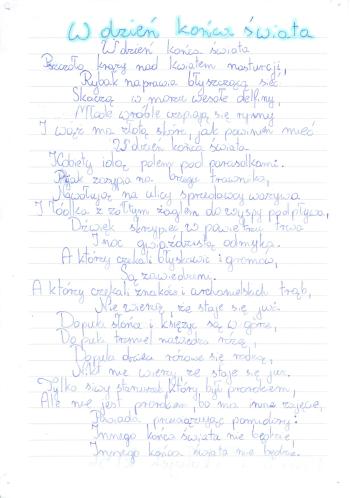 W dzień końca świata
W dzień końca świata
Pszczoła krąży nad kwiatem nasturcji,
Rybak naprawia błyszczącą sieć.
Skaczą w morzu wesołe delfiny,
Młode wróble czepiają się rynny
I wąż ma złotą skórę, jak powinien mieć
W dzień końca świata
Kobiety idą polem pod parasolkami.
Pijak zasypia na brzegu trawnika,
Nawołują na ulicy sprzedawcy warzywa
I łódka z żółtym żaglem do wyspy podpływa,
Dźwięk skrzypiec w powietrzu trwa
I noc gwiaździstą odmyka.
A którzy czekali błyskawic i gromów,
Są zawiedzeni.
A którzy czekali znaków i archanielskich trąb,
Nie wierzą, że staje się już.
Dopóki słońce i księżyc są w górze,
Dopóki trzmiel nawiedza różę,
Dopóki dzieci różowe się rodzą,
Nikt nie wierzy, że staje się już.
Tylko siwy staruszek, który byłby prorokiem,
Ale nie jest prorokiem, bo ma inne zajęcie,
Powiada przewiązując pomidory:
Innego końca świata nie będzie,
Innego końca świata nie będzie.